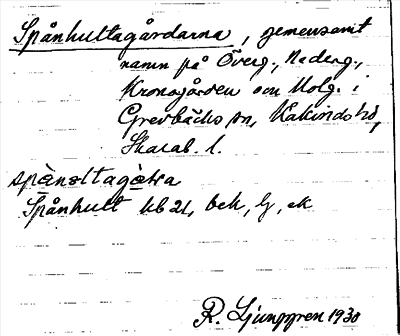 Spånhultagårdarna, gemensamt
namn på Överg., Nederg.,
Kronogården och Holg. i
Grevbäcks sn, Kakinds hd,
Skarab. l.
spànɷltagɷ̀ḷa
Spånhult bb 21, beh, lj, ek
R. Ljunggren 1930